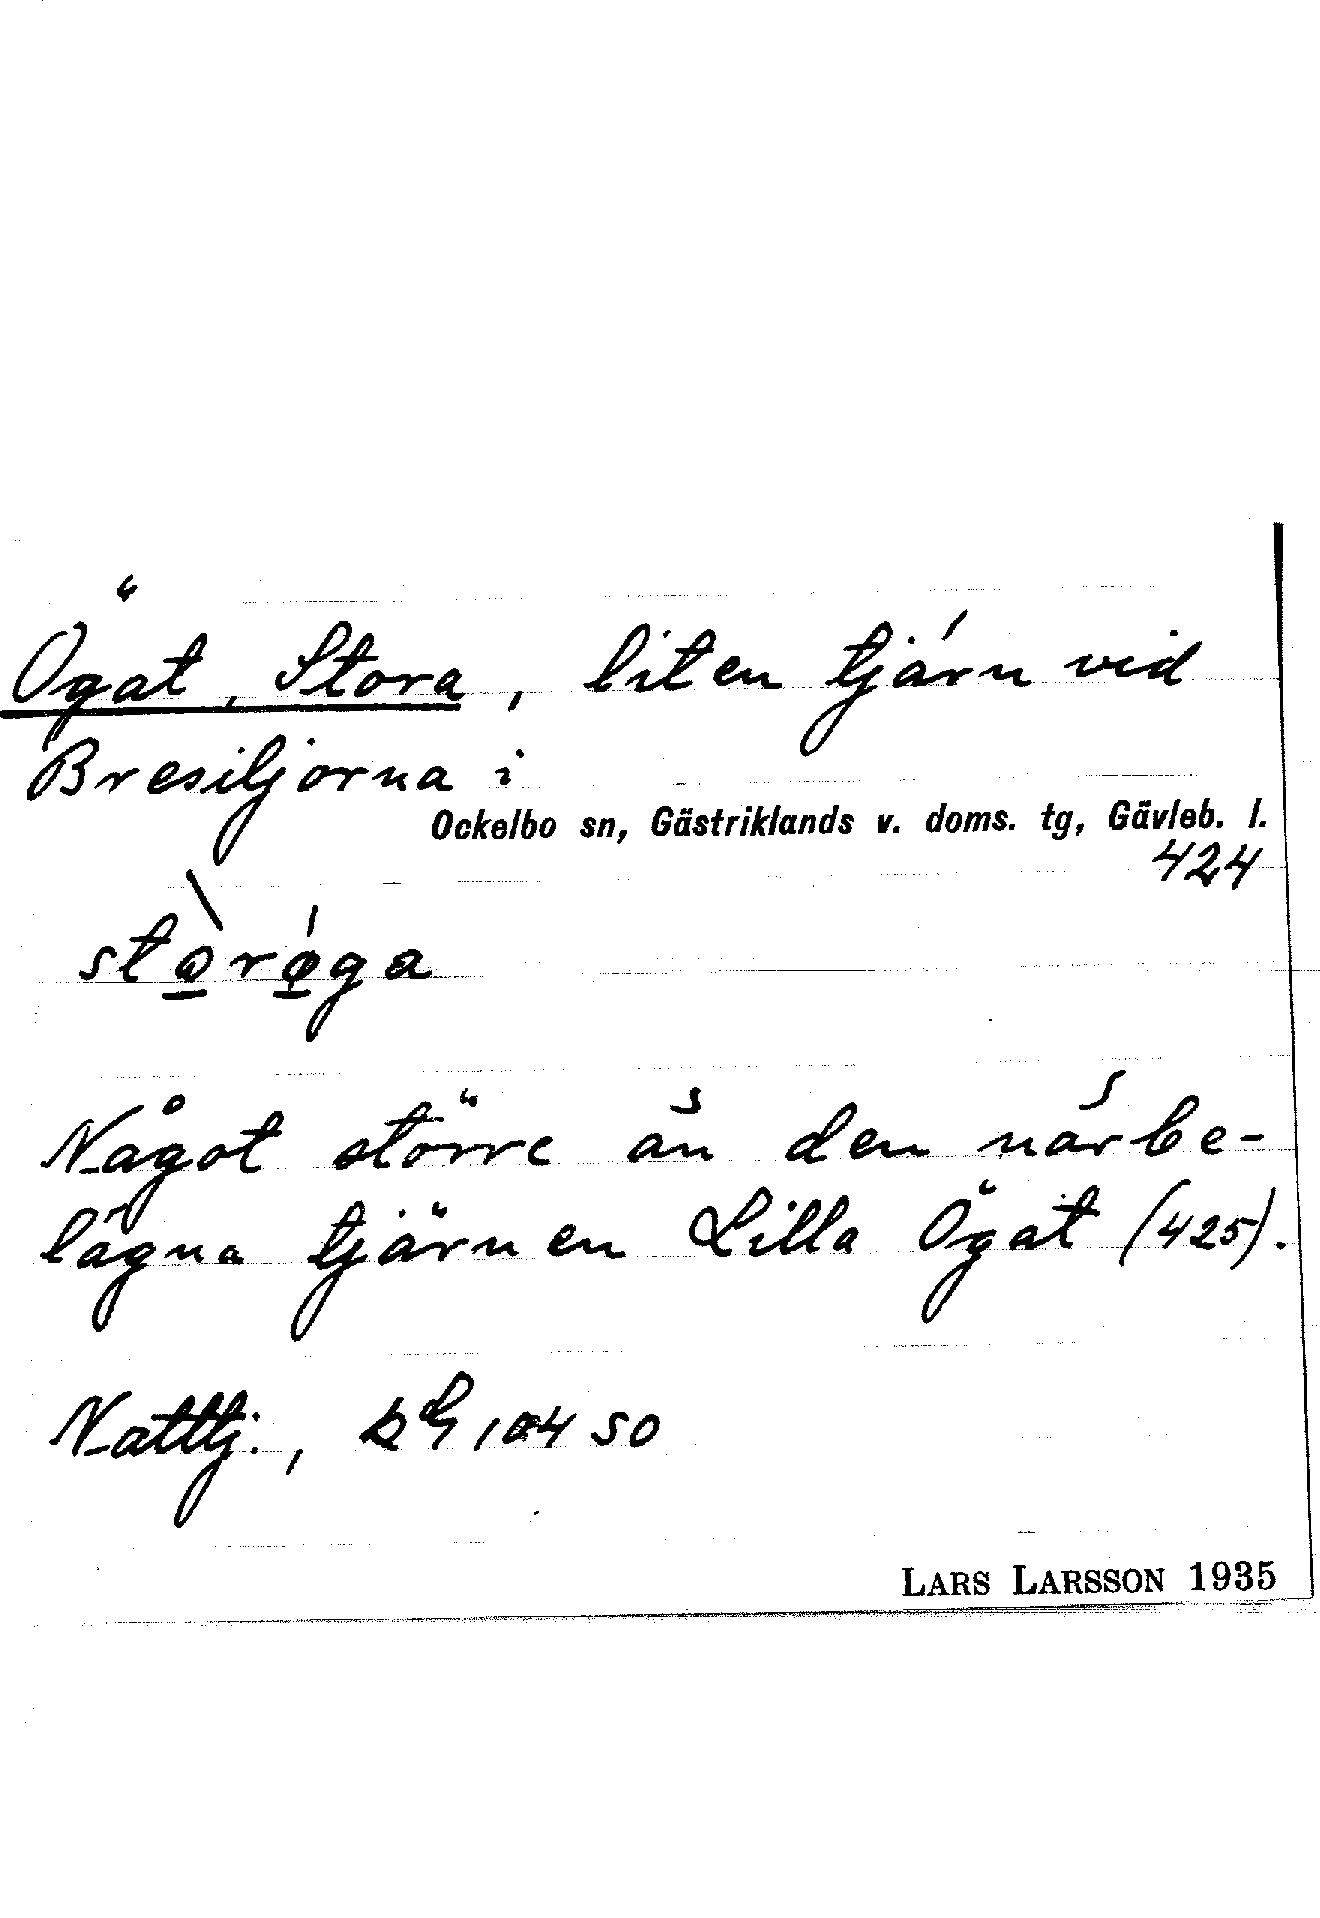 Ögat, Stora, liten tjärn vid
Bresiljorna i
Ockelbo sn, Gästriklands v. doms. tg, Gävleb. l.
424
størøga
Något större än den närbe-
lägna tjärnen Lilla Ögat (425).
Natttj.,
LARS LARSSON 1935